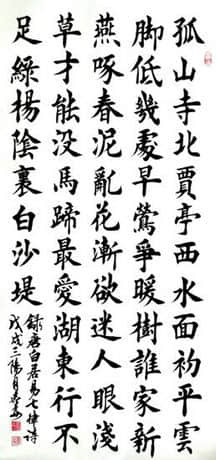 孤山寺北賈亭西水面初平雲
脚低幾處早鶯爭暖樹誰家新
燕啄春泥亂花漸欲迷人眼淺
草才能没馬蹄最愛湖東行不
足綠楊陰裏白沙堤
錄唐白居易七律詩
戊戌三陽月